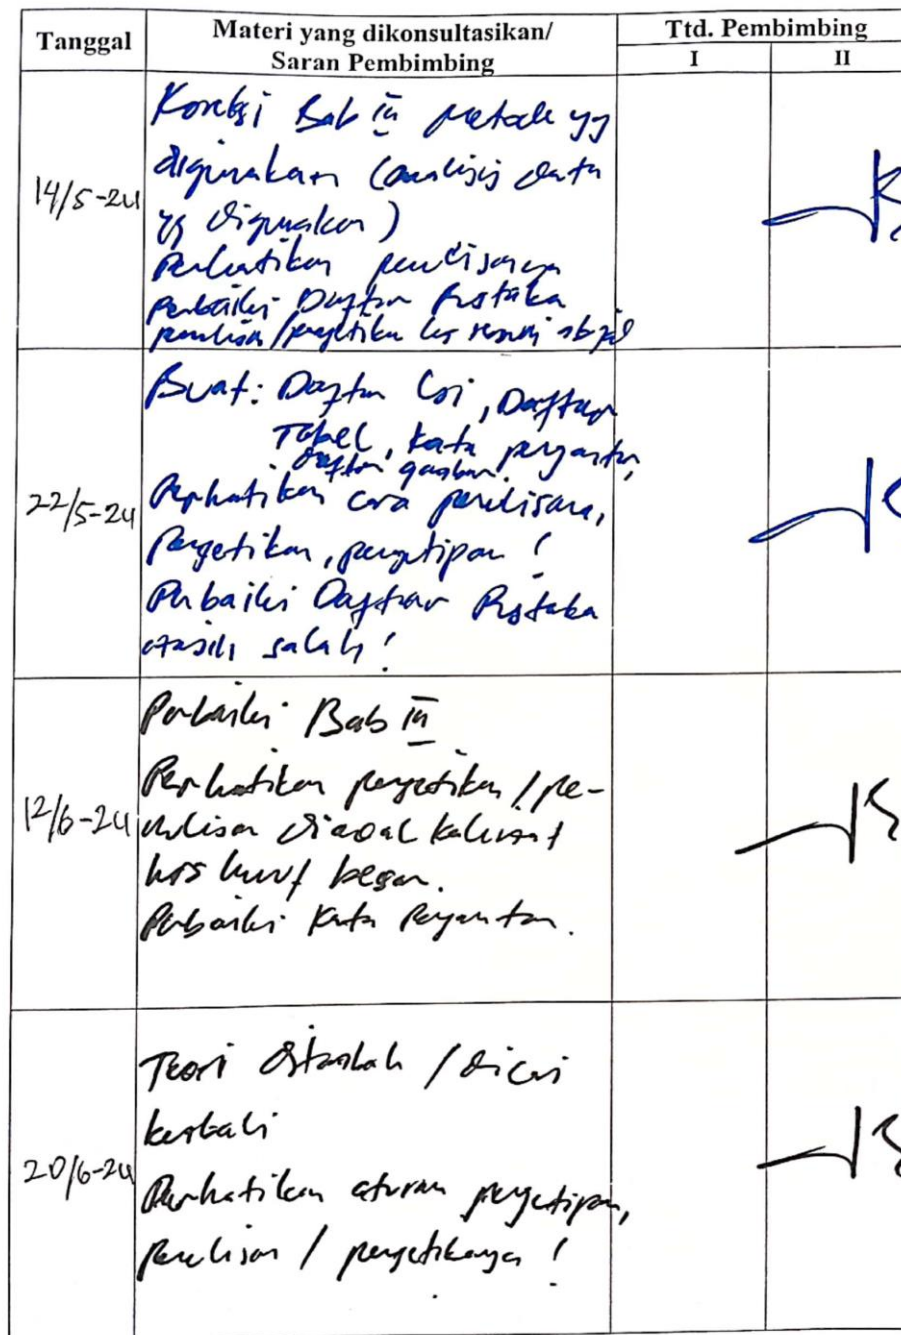 Tanggal
Materi yang dikonsultasikan/
Saran Pembimbing
Ttd. Pembimbing
I
II
14/5-24
Koreksi Bab III metode yg
digunakan (analisis data
yg digunakan)
Perhatikan penulisannya
Perbaiki Daftar Pustaka
penulisan/pengetikan
22/5-24
Buat: Daftar Isi, Daftar
Tabel, kata pengantar,
daftar gambar.
Perhatikan cara penulisan,
Pengetikan, pengutipan!
Perbaiki Daftar Pustaka
masih salah!
12/6-24
Perbaiki Bab III
Perhatikan pengetikan/pe-
nulisan diawal kalimat
hrs huruf besar.
Perbaiki Kata Pengantar.
20/6-24
Teori ditambah / dicari
kembali
Perhatikan aturan pengutipan,
Penulisan / pengetikannya!